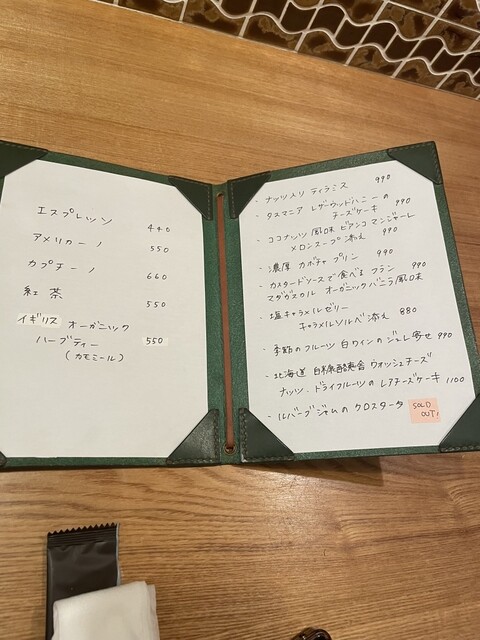 エスプレッソ 440
アメリカーノ 550
カプチーノ 660
紅茶 550
イギリス オーガニック
ハーブティー 550
(カモミール)
・ナッツ入り ティラミス 990
・タスマニア レザーウッドハニーの
チーズケーキ 990
・ココナッツ風味 ビアンコマンジャーレ
メロンスープ添え 990
・濃厚 カボチャ プリン 990
・カスタードソースで食べる フラン 990
マダガスカル オーガニックバニラ風味
・塩キャラメルゼリー
キャラメルソルベ添え 880
・季節のフルーツ 白ワインのジュレ寄せ 990
・北海道 白糠酪恵舎 ウォッシュチーズ
ナッツ・ドライフルーツの レアチーズケーキ 1100
・ルバーブジャムの クロスタータ SOLD
OUT!